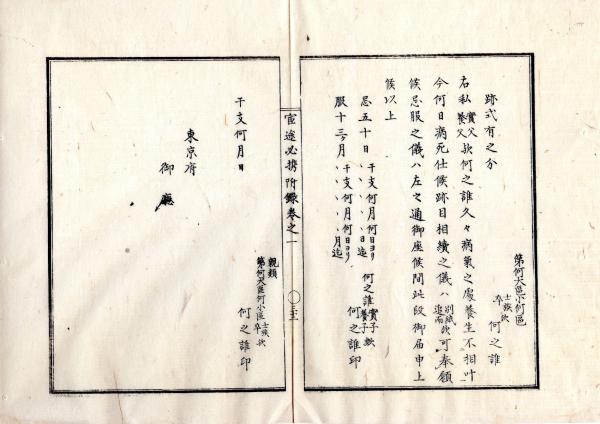 跡式有之分
第何大區小何區
士族欤
卒
何之誰
右私實父
養父欤何之誰久々病氣之處養生不相叶
今何日病死仕候跡目相續之儀ハ別紙欤
追而可奉願
候忌服之儀ハ左之通御座候間此段御届申上
候以上
忌五十日
干支何月何日ヨリ
、、、、日迄
服十三ヶ月
干支何月何日ヨリ
、、、、月迄
何之誰實子
養子欤
何之誰印
官途必携附録巻之一
三十三
親類
第何大區何小區
士族欤
卒
何之誰印
干支何月日
東京府
御廳